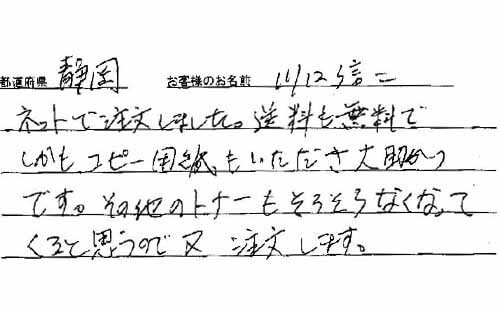 都道府県 静岡 お客様のお名前
ネットで注文しました。送料も無料で
しかもコピー用紙もいただき大助かり
です。その他のトナーもそろそろなくなって
くると思うので又 注文します。